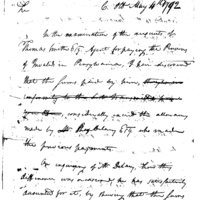 Sir C. Off. May 4th 1792
In the examination of the accounts of
Thomas Smith Esqr Agent for paying the Pensions
of Invalids in Pennsylvania, I have discovered
that the sums paid by him,
considerably exceed the allowances
made by Mr Delany Esqr who made
the previous payments.
On enquiry of Mr Delany, how this
difference was occasioned he has satisfactorily
accounted for it, by shewing that the sums